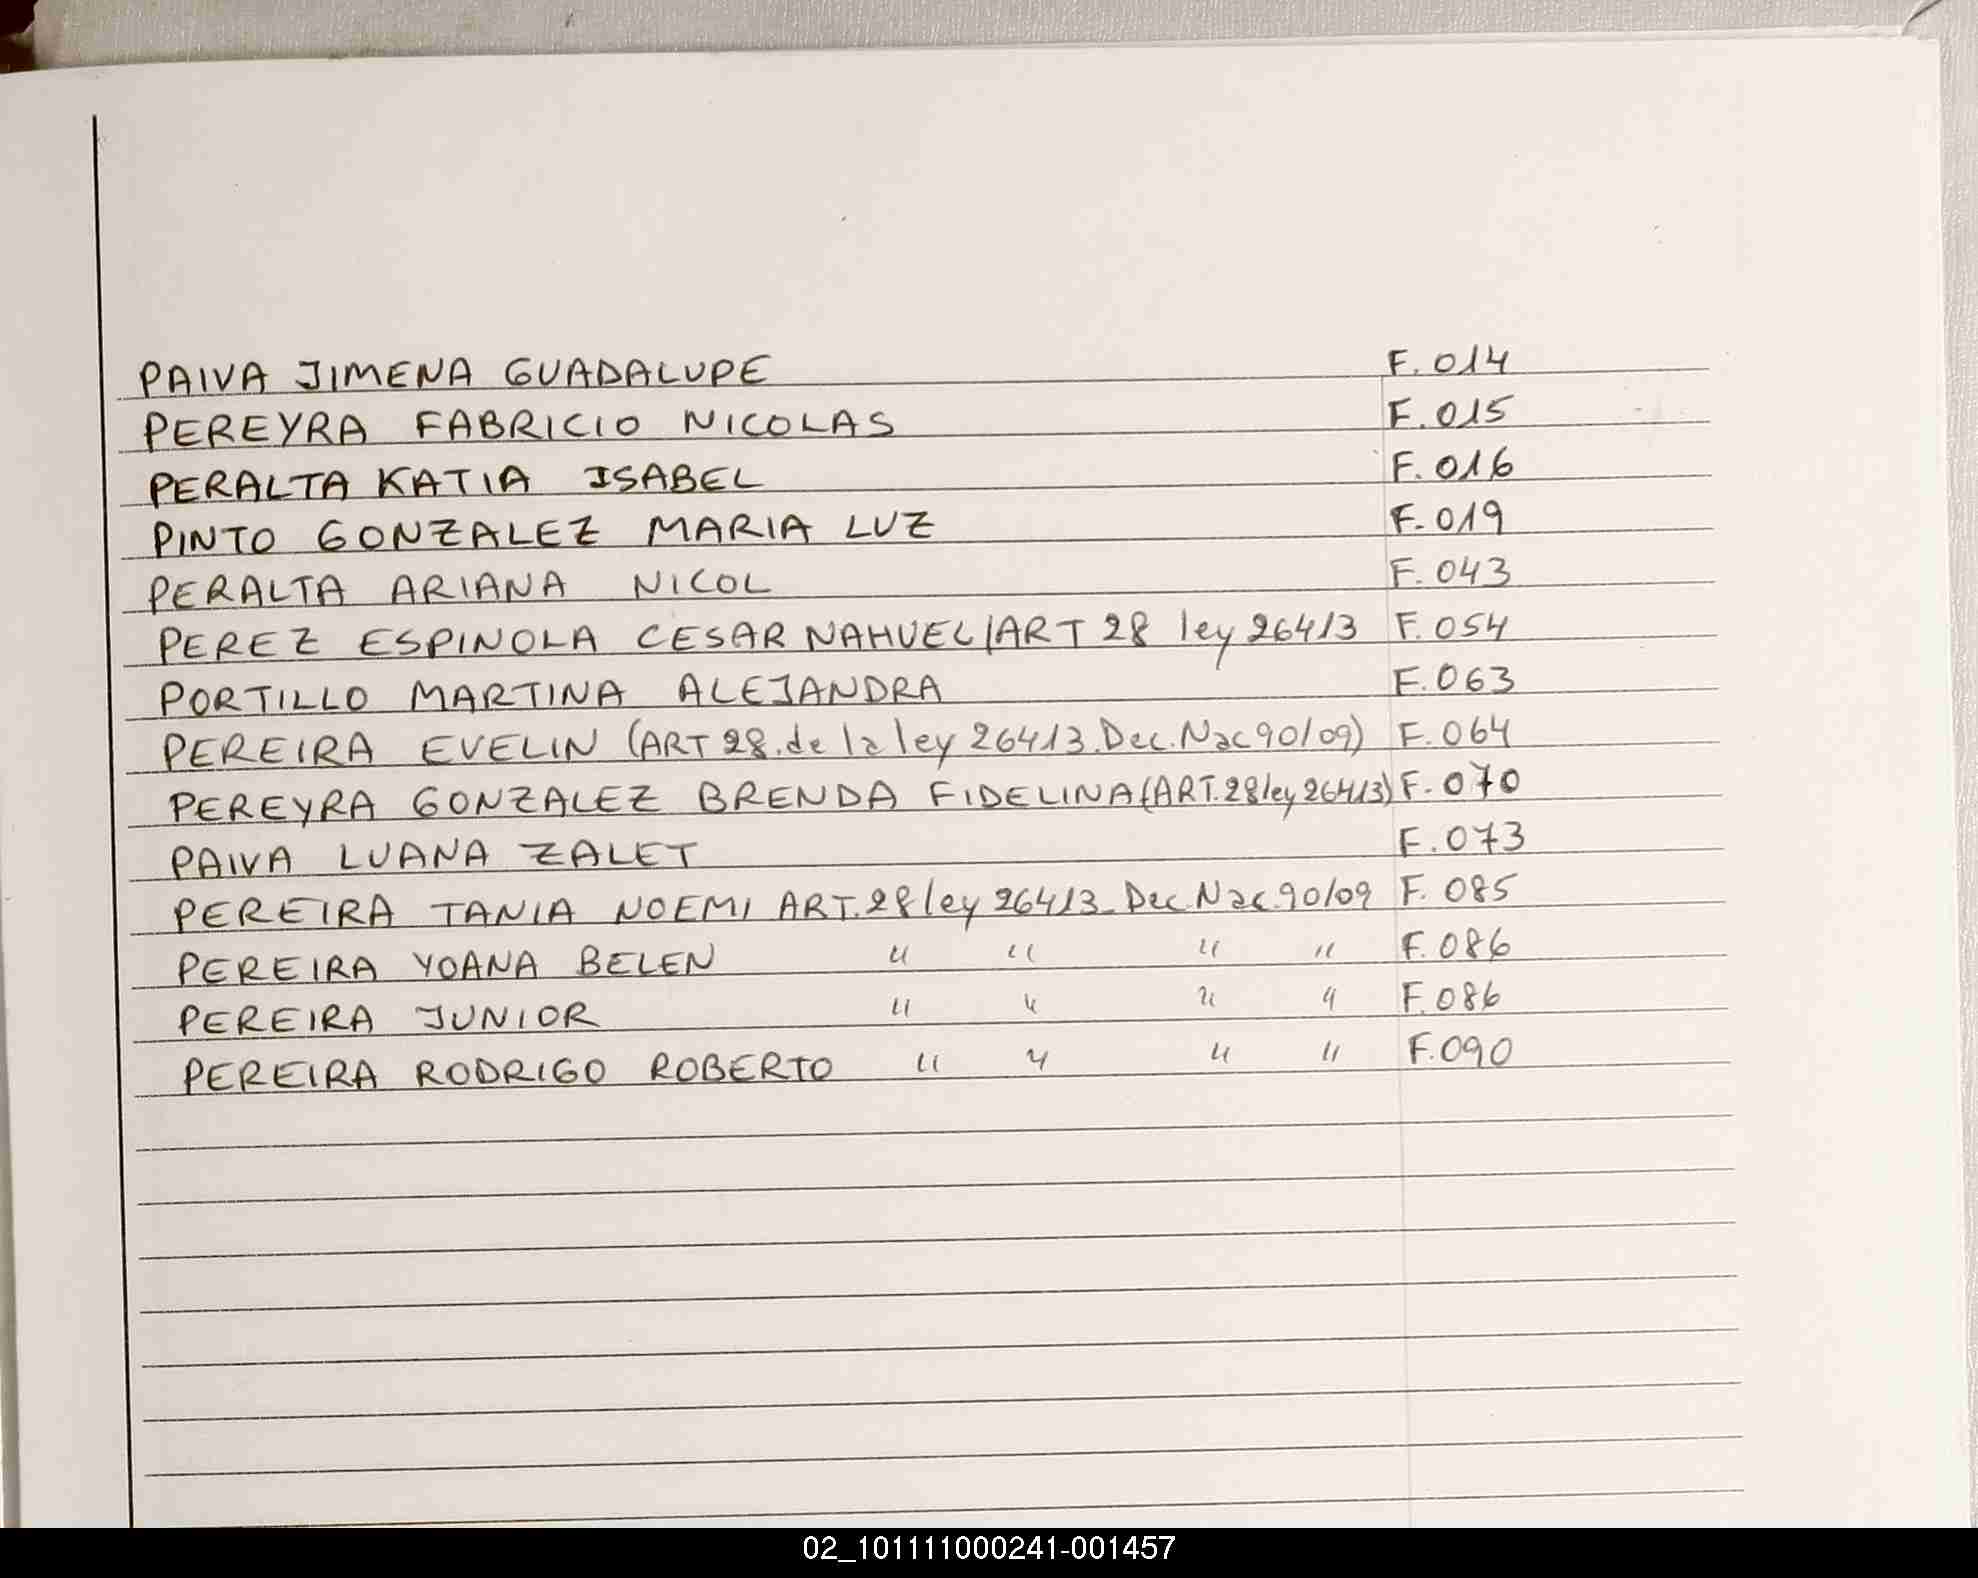 PAIVA JIMENA GUADALUPE F. 014
PEREYRA FABRICIO NICOLAS F. 015
PERALTA KATIA ISABEL F. 016
PINTO GONZALEZ MARIA LUZ F. 019
PERALTA ARIANA NICOL F. 043
PEREZ ESPINOLA CESAR NAHUEL/ART 28 ley 26413 F. 054
PORTILLO MARTINA ALEJANDRA F. 063
PEREIRA EVELIN (ART 28. de la ley 26413. Dec. Nac 90/09) F. 064
PEREYRA GONZALEZ BRENDA FIDELINA (ART. 28 ley 26413) F. 070
PAIVA LUANA ZALET F. 073
PEREIRA TANIA NOEMI ART. 28 ley 26413 - Dec. Nac. 90/09 F. 085
PEREIRA YOANA BELEN " " " " F. 086
PEREIRA JUNIOR " " " " F. 086
PEREIRA RODRIGO ROBERTO " " " " F. 090
02_101111000241-001457